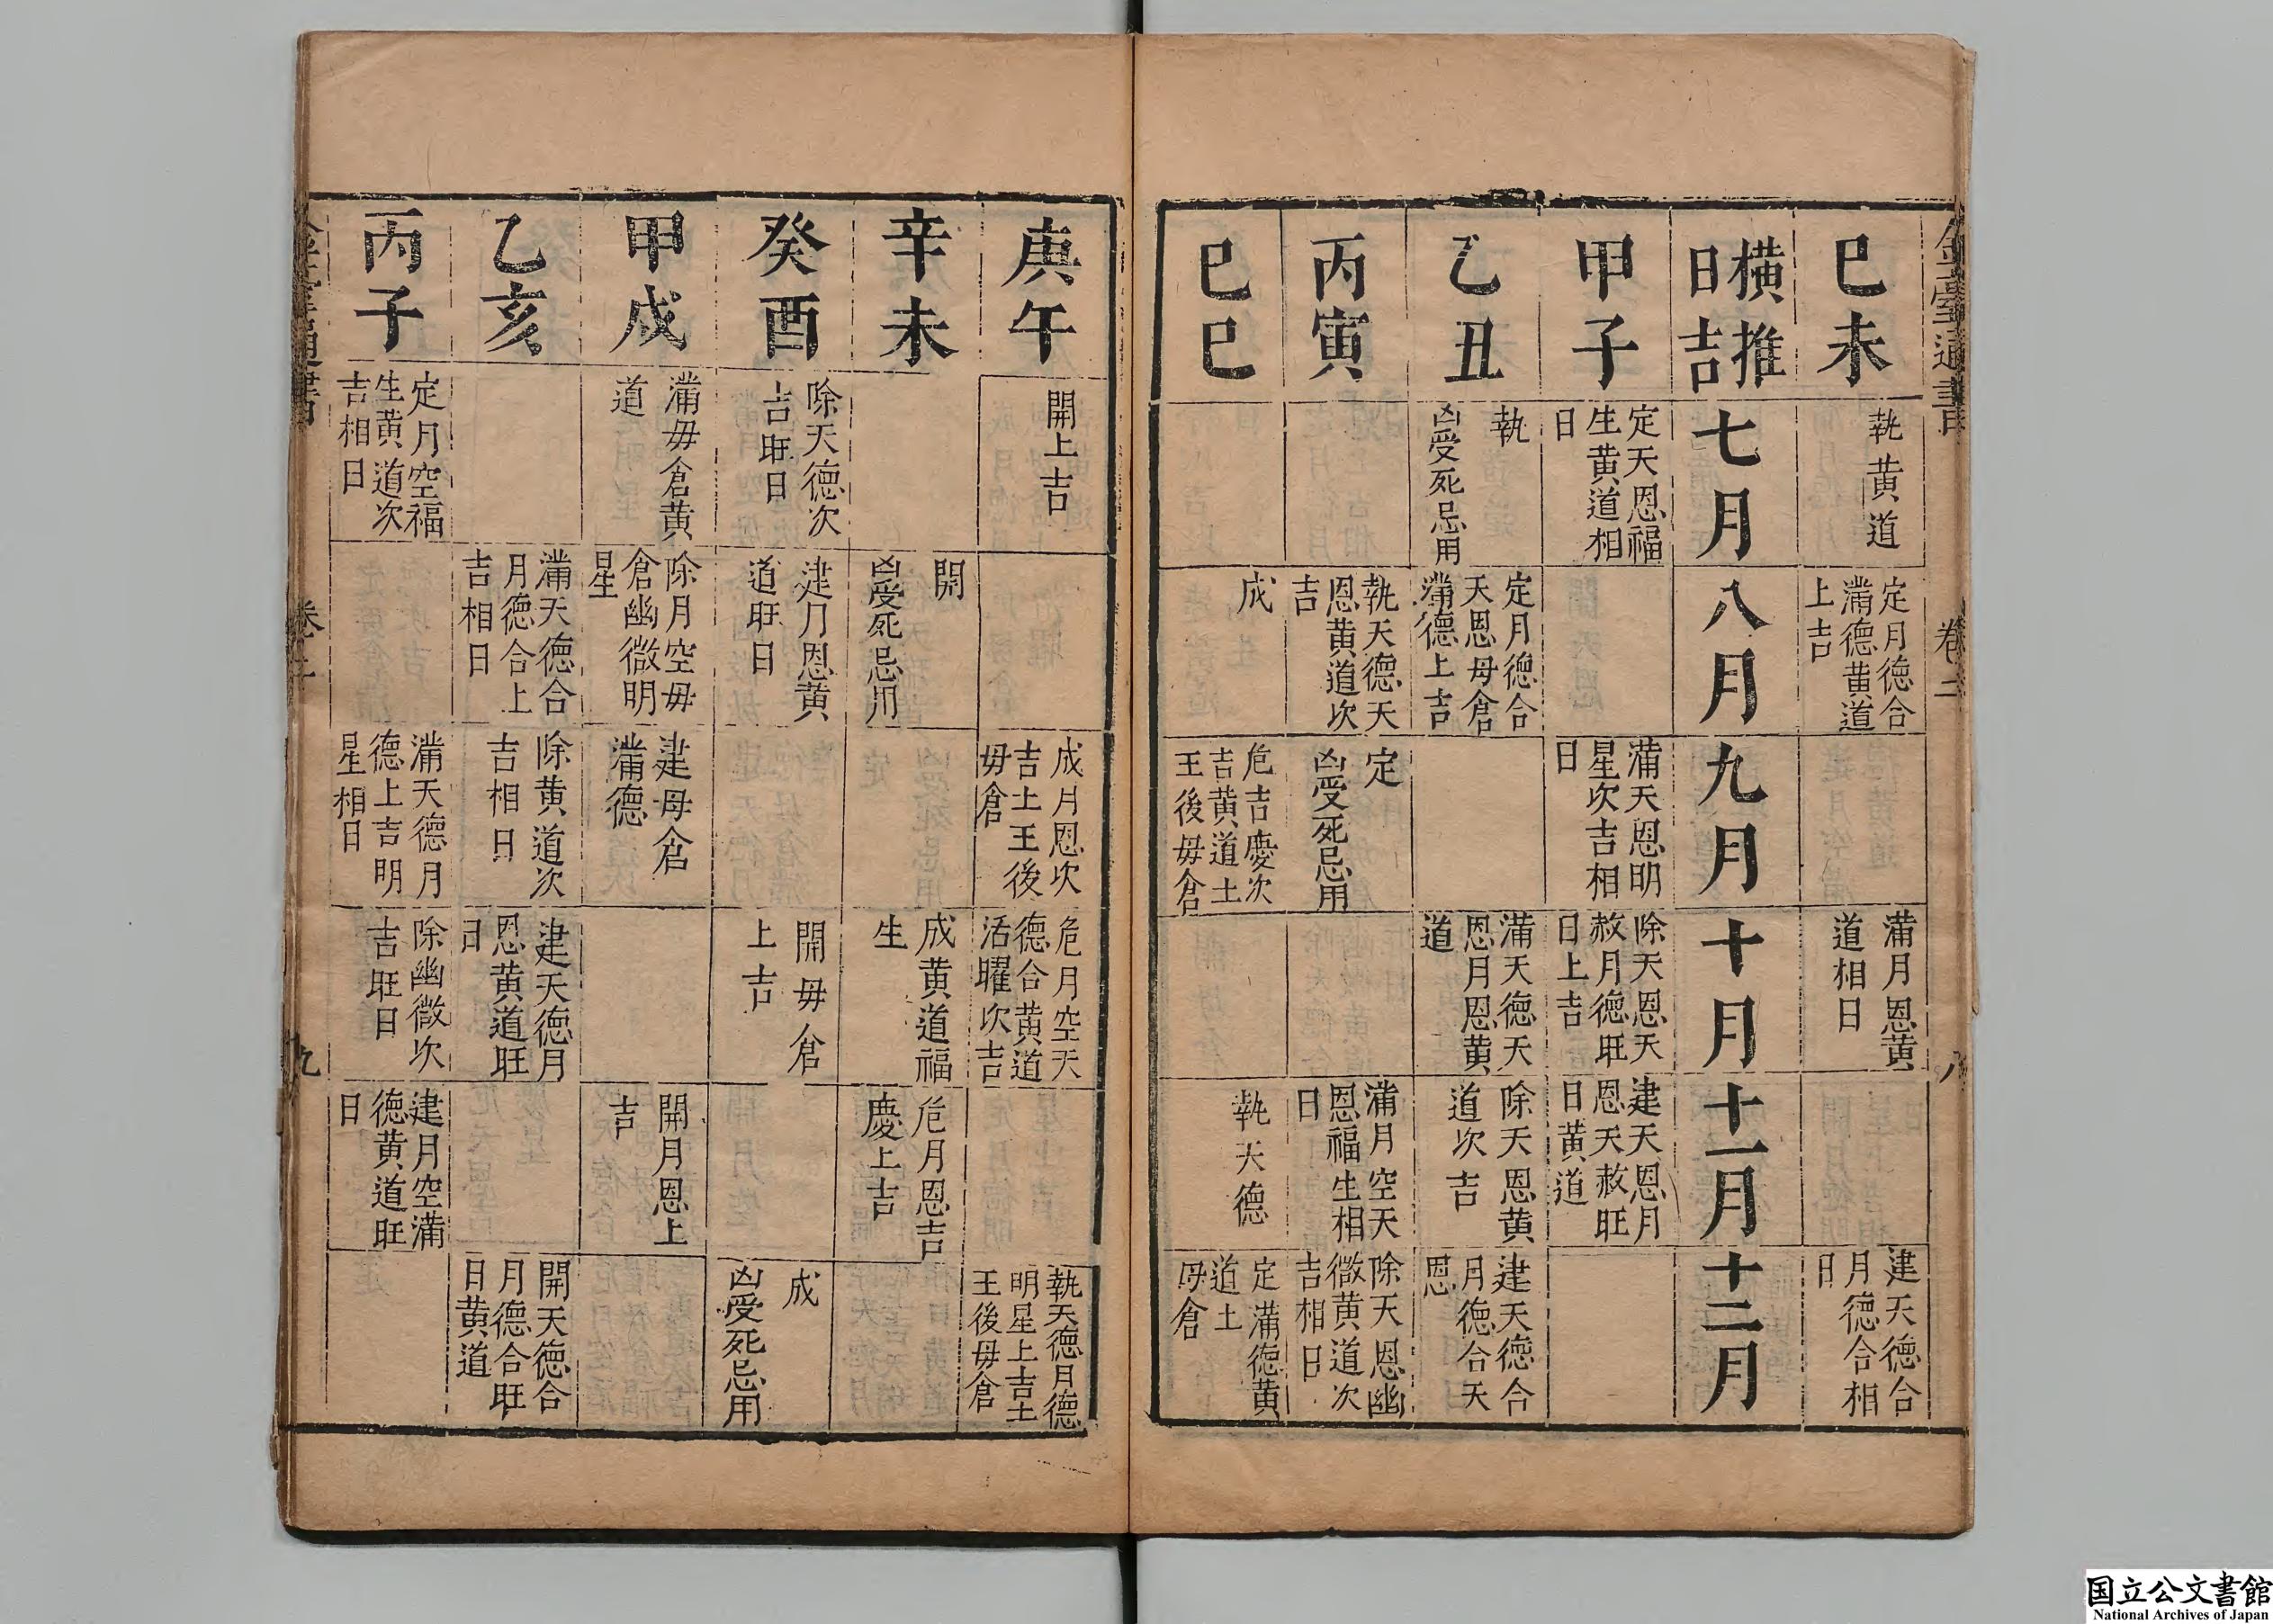 金臺通書
卷二
八
巳未
執黄道
定月德合
滿德黄道
上吉
滿月恩黄
道相日
建天德合
月德合相
日
橫推
日吉
七月
八月
九月
十月
十一月
十二月
甲子
定天恩福
生黄道相
日
滿天恩明
星次吉相
日
除天恩天
赦月德旺
日上吉
建天恩月
恩天赦旺
日黄道
乙丑
執
凶受死忌用
定月德合
天恩毋倉
滿德上吉
滿天德天
恩月恩黄
道
除天恩黄
道次吉
建天德合
月德合天
恩
丙寅
執天德天
恩黄道次
吉
定
凶受死忌用
滿月空天
恩福生相
日
除天恩幽
微黄道次
吉相日
巳巳
成
危吉慶次
吉黄道土
王後毋倉
執天德
定滿德黄
道土
毋倉
庚午
開上吉
成月恩次
吉土王後
毋倉
危月空天
德合黄道
活曜次吉
執天德月德
明星上吉土
王後毋倉
辛未
開
凶受死忌用
成黄道福
生
危月恩吉
慶上吉
癸酉
除天德次
吉旺日
建月恩黄
道旺日
開毋倉
上吉
成
凶受死忌用
甲戌
滿毋倉黄
道
除月空毋
倉幽微明
星
建母倉
滿德
開月恩上
吉
乙亥
滿天德合
月德合上
吉相日
除黄道次
吉相日
建天德月
恩黄道旺
日
開天德合
月德合旺
日黄道
丙子
定月空福
生黄道次
吉相日
滿天德月
德上吉明
星相日
除幽微次
吉旺日
建月空滿
德黄道旺
日
卷二
九
国立公文書館
National Archives of Japan